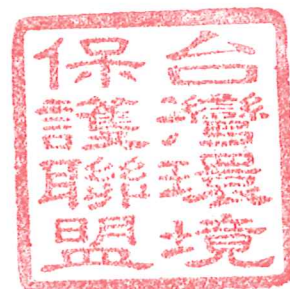 台灣環境
保護聯盟